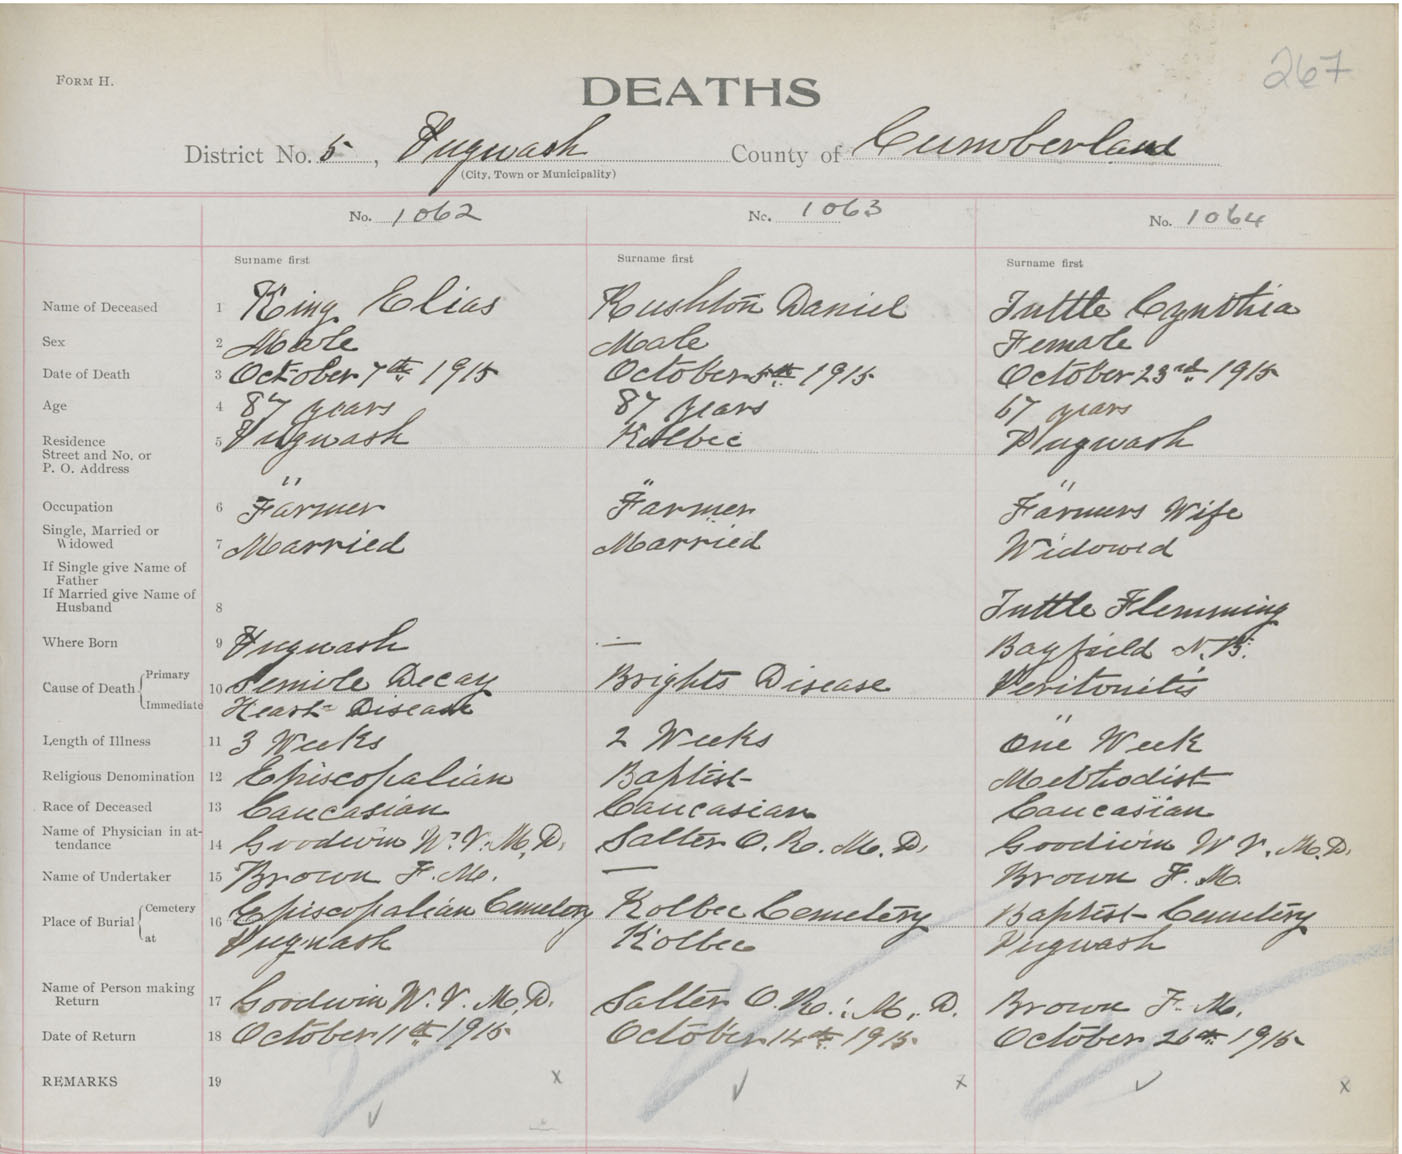 267
FORM H.
DEATHS
District No. 5, Pugwash County of Cumberland
(City, Town or Municipality)
No. 1062 No. 1063 No. 1064
Surname first Surname first Surname first
Name of Deceased 1 King Elias Rushton Daniel Tuttle Cynthia
Sex 2 Male Male Female
Date of Death 3 October 7th 1915 October 5th 1915 October 23rd 1915
Age 4 87 years 87 years 67 years
Residence 5 Pugwash Kolbec Pugwash
Street and No. or
P. O. Address
" " "
Occupation 6 Farmer Farmer Farmers Wife
Single, Married or
Widowed 7 Married Married Widowed
If Single give Name of
Father
If Married give Name of
Husband 8 Tuttle Flemming
Where Born 9 Pugwash — Bayfield N.B.
Cause of Death Primary 10 Senile Decay Brights Disease Peritonitis
Immediate Heart Disease
Length of Illness 11 3 Weeks 2 Weeks One Week
Religious Denomination 12 Episcopalian Baptist Methodist
Race of Deceased 13 Caucasian Caucasian Caucasian
Name of Physician in at-
tendance 14 Goodwin W. V. M. D. Salter O. R. M. D. Goodwin W V. M. D.
Name of Undertaker 15 Brown F. M. — Brown F. M.
Place of Burial Cemetery 16 Episcopalian Cemetery Kolbec Cemetery Baptist Cemetery
at Pugwash Kolbec Pugwash
Name of Person making
Return 17 Goodwin W. V. M. D. Salter O. R. M. D. Brown F. M.
Date of Return 18 October 11th 1915 October 14th 1915 October 26th 1915
REMARKS 19 x x x